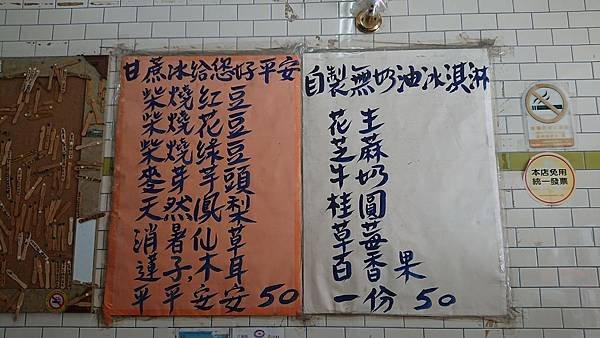 甘蔗冰給您好平安
柴燒紅豆
柴燒花豆
柴燒綠豆
麥芽芋頭
天然鳳梨
消暑仙草
蓮子,木耳
平平安安 50
自製無奶油冰淇淋
花生
芝蔴
牛奶
桂圓
草莓
百香果
一份 50
本店免用
統一發票